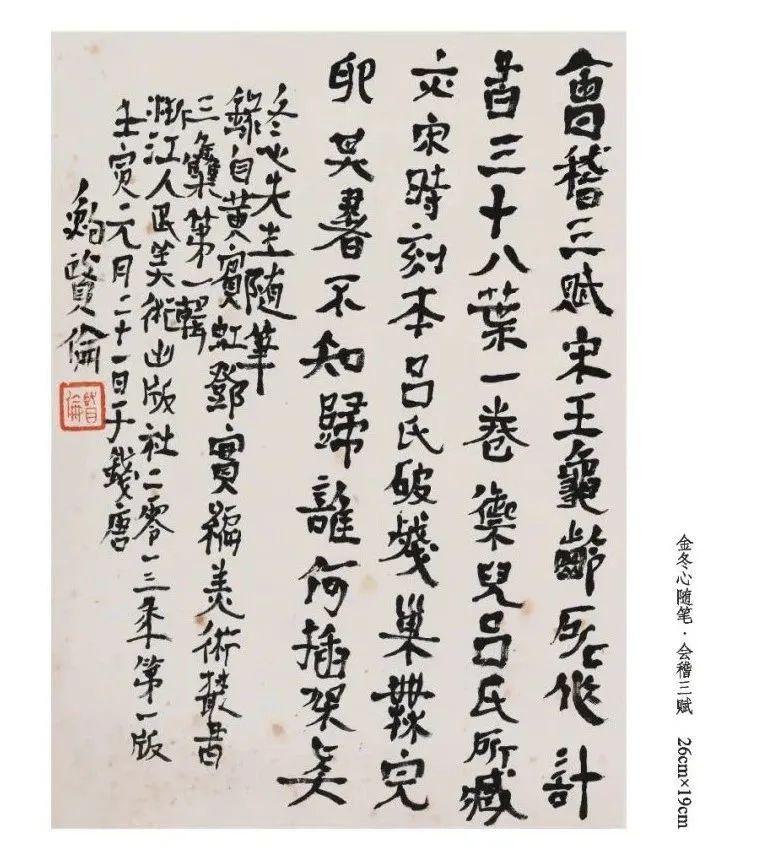 會稽三賦宋王龜齡所作計
書三十八葉一卷禦兒呂氏所藏
亦宋時刻本呂氏破殘巢無完
卵其書不知歸誰何插架矣
冬心先生隨筆
錄自黃賓虹鄧實編美術叢書
三集第一輯
浙江人民美術出版社二零一三年第一版
壬寅元月二十一日于錢唐
鮑賢倫
賢倫
金冬心随笔·会稽三赋 26cm×19cm